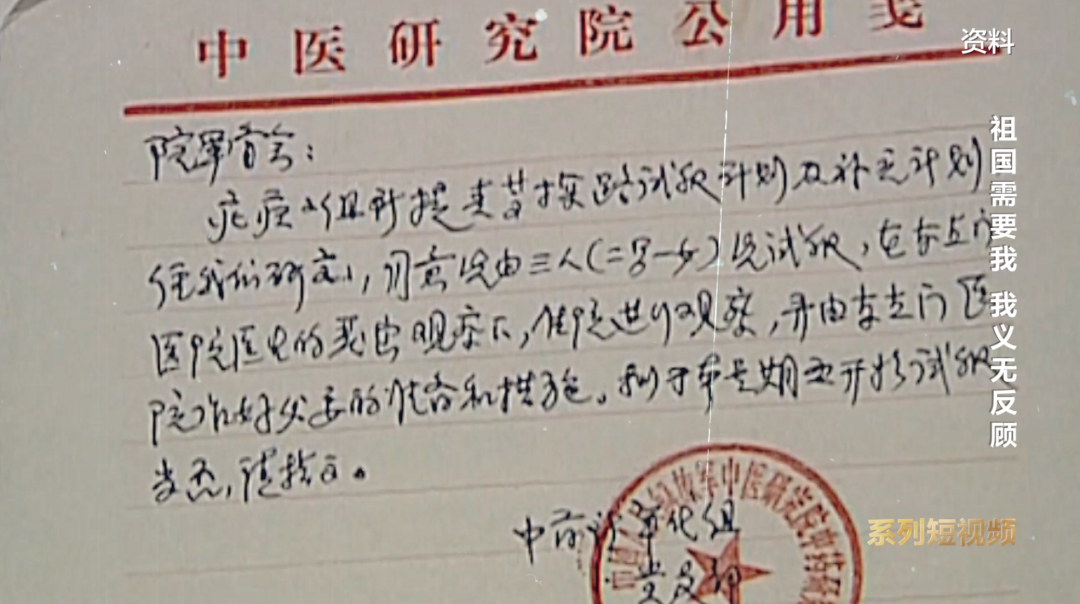 中医研究院公用笺
资料
祖国需要我 我义无反顾
院军管会：
疟疾小组所提青蒿探路试服计划及补充计划
经我们研究，同意先由三人（二男一女）先试服，在东直门
医院医生的严密观察下，住院进行观察，并由东直门医
院作好必要的准备和措施。拟于本星期五开始试服
当否，请指示。
中药所革化组
系列短视频